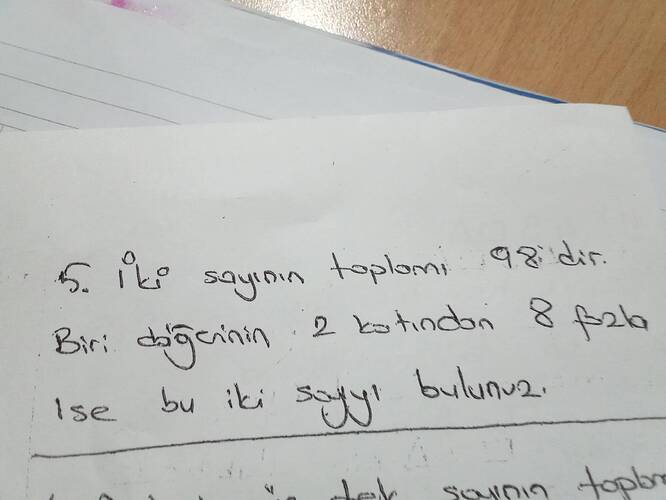 5. İki sayının toplamı 98'dir.
Biri diğerinin 2 katından 8 fazla
ise bu iki sayıyı bulunuz.
tek sayının toplam